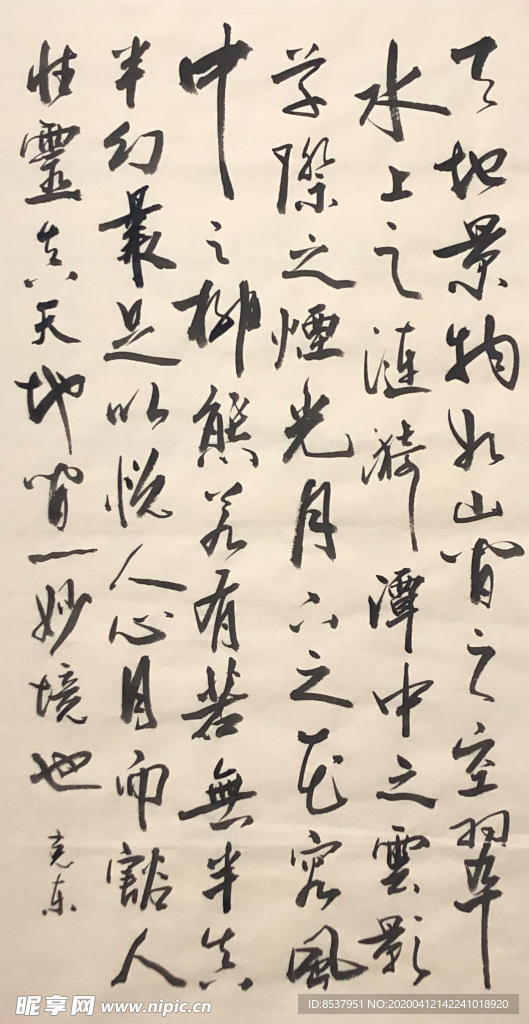 天地景物如山間之空翠
水上之漣漪潭中之雲影
草際之煙光月下之花容風
中之柳態若有若無半真
半幻最足以悅人心目而豁人
性靈真天地間一妙境也
克东
昵享网 www.nipic.cn
ID:8537951 NO:20200412142241018920